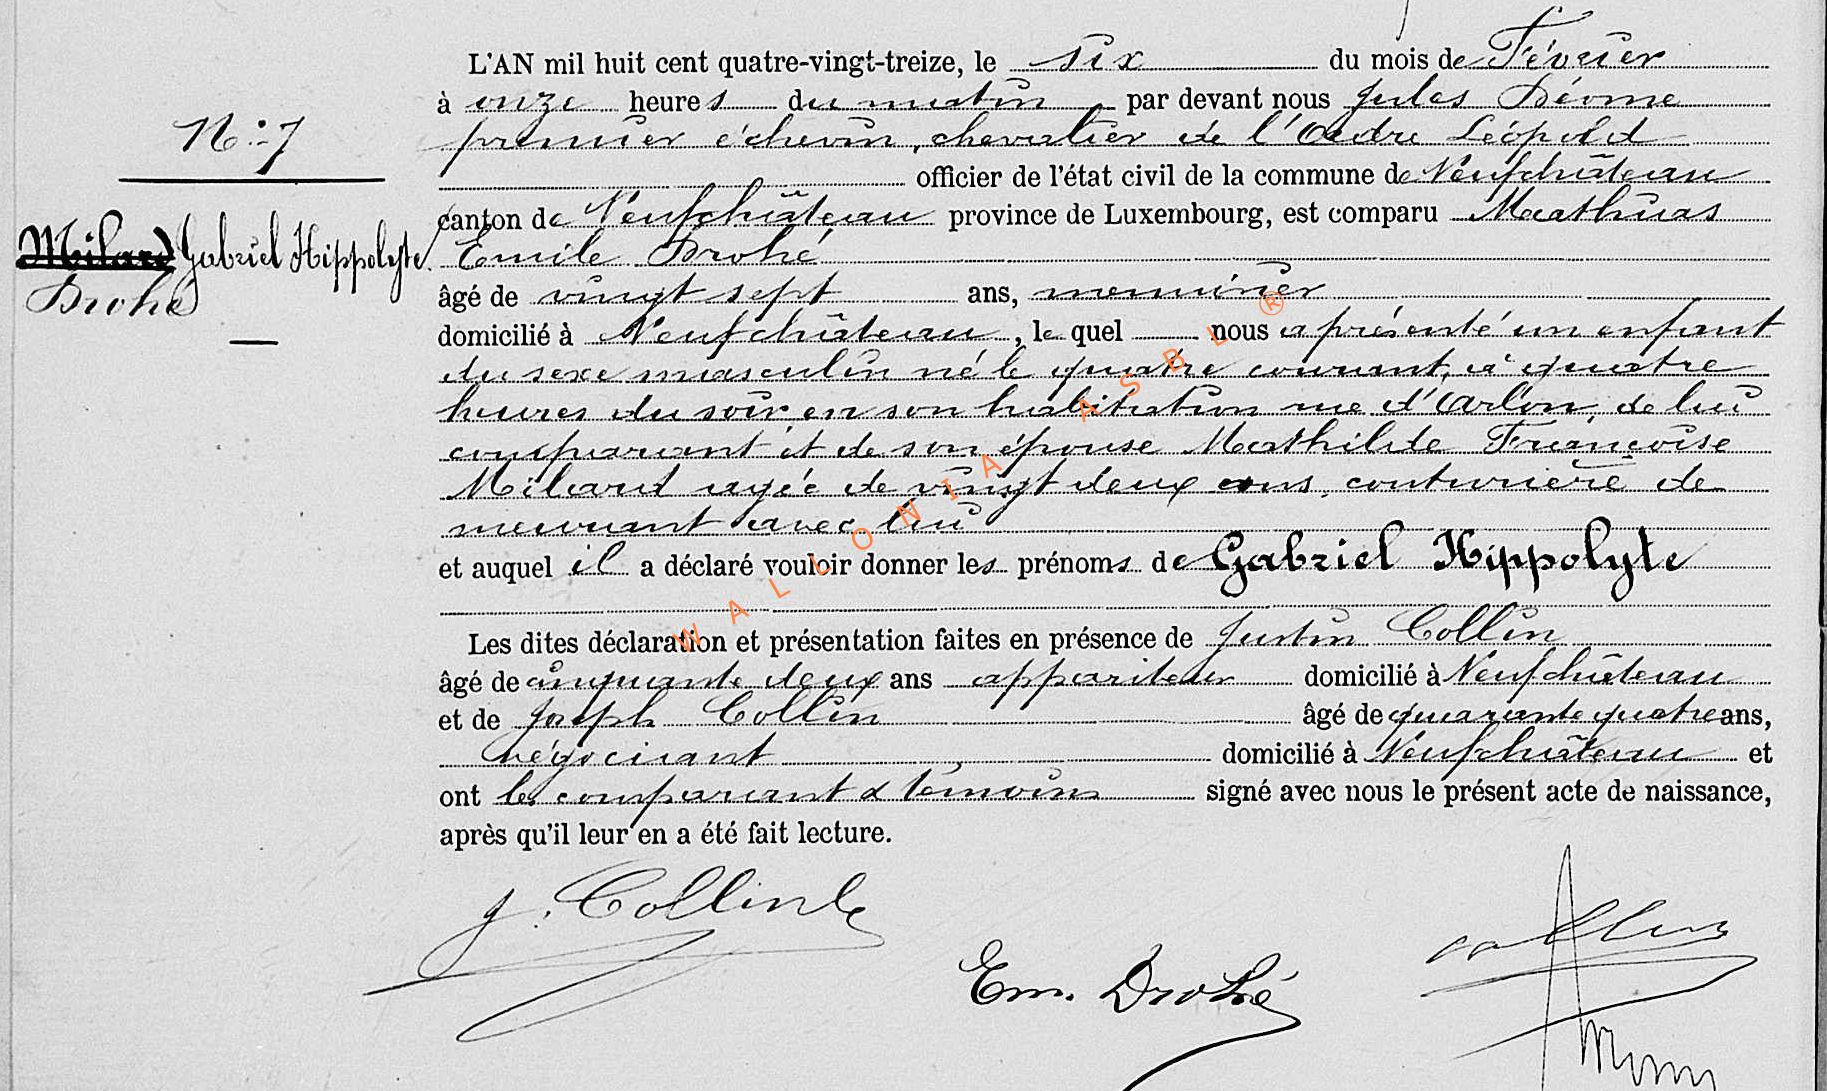 L'AN mil huit cent quatre-vingt-treize, le six du mois de Février
à onze heures du matin par devant nous Jules Déome
N° 7
premier échevin, chevalier de l'Ordre Léopold
officier de l'état civil de la commune de Neufchâteau
canton de Neufchâteau province de Luxembourg, est comparu Mathias
Milard Gabriel Hippolyte.
Drohé
Emile Drohé
âgé de vingt sept ans, menuisier
domicilié à Neufchâteau, le quel nous a présenté un enfant
du sexe masculin né le quatre courant, à quatre
heures du soir en son habitation rue d'Arlon, de lui
comparant et de son épouse Mathilde Françoise
Milard agée de vingt deux ans, couturière de
meurant avec lui
et auquel il a déclaré vouloir donner les prénoms de Gabriel Hippolyte
Les dites déclaration et présentation faites en présence de Justin Collin
âgé de cinquante deux ans appariteur domicilié à Neufchâteau
et de Joseph Collin âgé de quarante quatre ans,
négociant domicilié à Neufchâteau et
ont les comparant & témoins signé avec nous le présent acte de naissance,
après qu'il leur en a été fait lecture.
J. Collin
Em. Drohé
WALLONIA ASBL ®